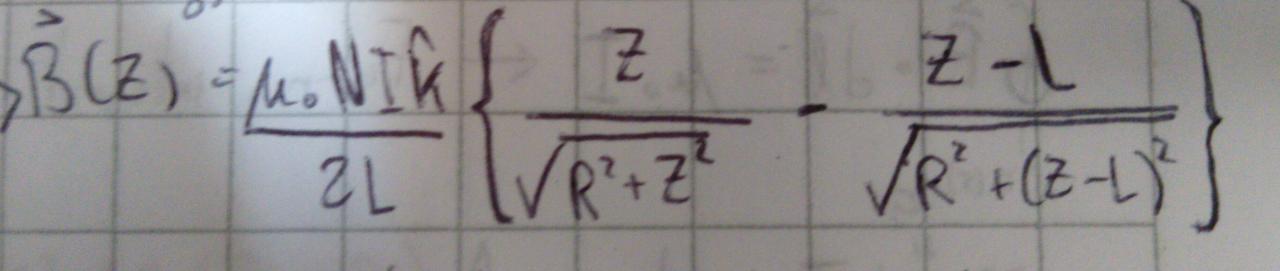 $\vec{B}(z) = \frac{\mu_0 N I \hat{k}}{2L} \left\{ \frac{z}{\sqrt{R^2+z^2}} - \frac{z-L}{\sqrt{R^2+(z-L)^2}} \right\}$